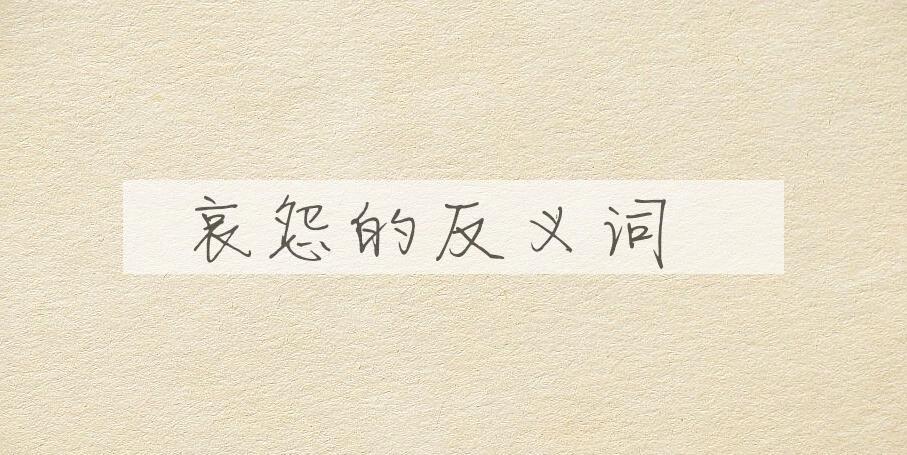 哀怨的反义词